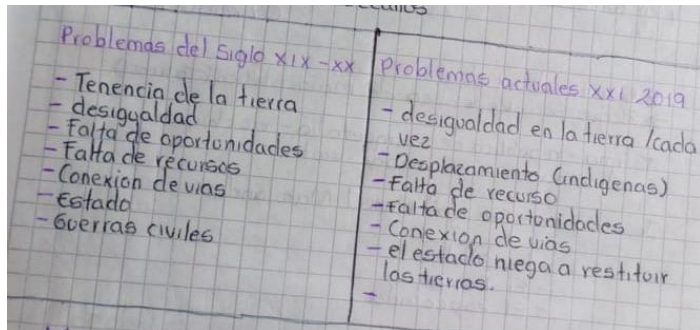 Problemas del siglo XIX-XX
- Tenencia de la tierra
- desigualdad
- Falta de oportunidades
- Falta de recursos
- Conexion de vias
- Estado
- Guerras civiles
Problemas actuales XXI 2019
- desigualdad en la tierra /cada
vez
- Desplazamiento (indigenas)
- Falta de recurso
- Falta de oportunidades
- Conexion de vias
- el estado niega a restituir
las tierras.
-